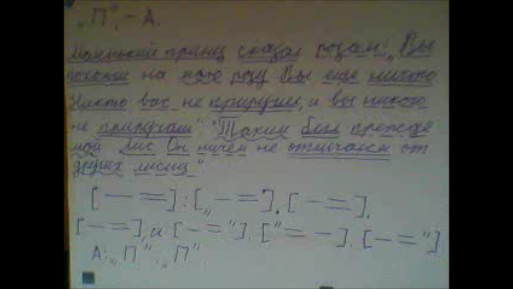 „П", – А.
Маленький принц сказал розам: „Вы
похожи на мою розу Вы еще ничто.
Никто вас не приручил, и вы никого
не приручили" "Таким был прежде
мой Лис Он ничем не отличался от
других лисиц"
[— =] : [„ — =]. [— =].
[— =], и [— = "]. ["= —]. [— = "]
А: „П". „П"